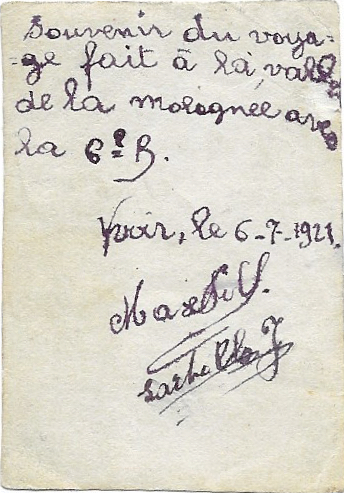 Souvenir du voya-
-ge fait à la vallée
de la molognée avec
la 6e B.
Yvoir, le 6-7-1921.